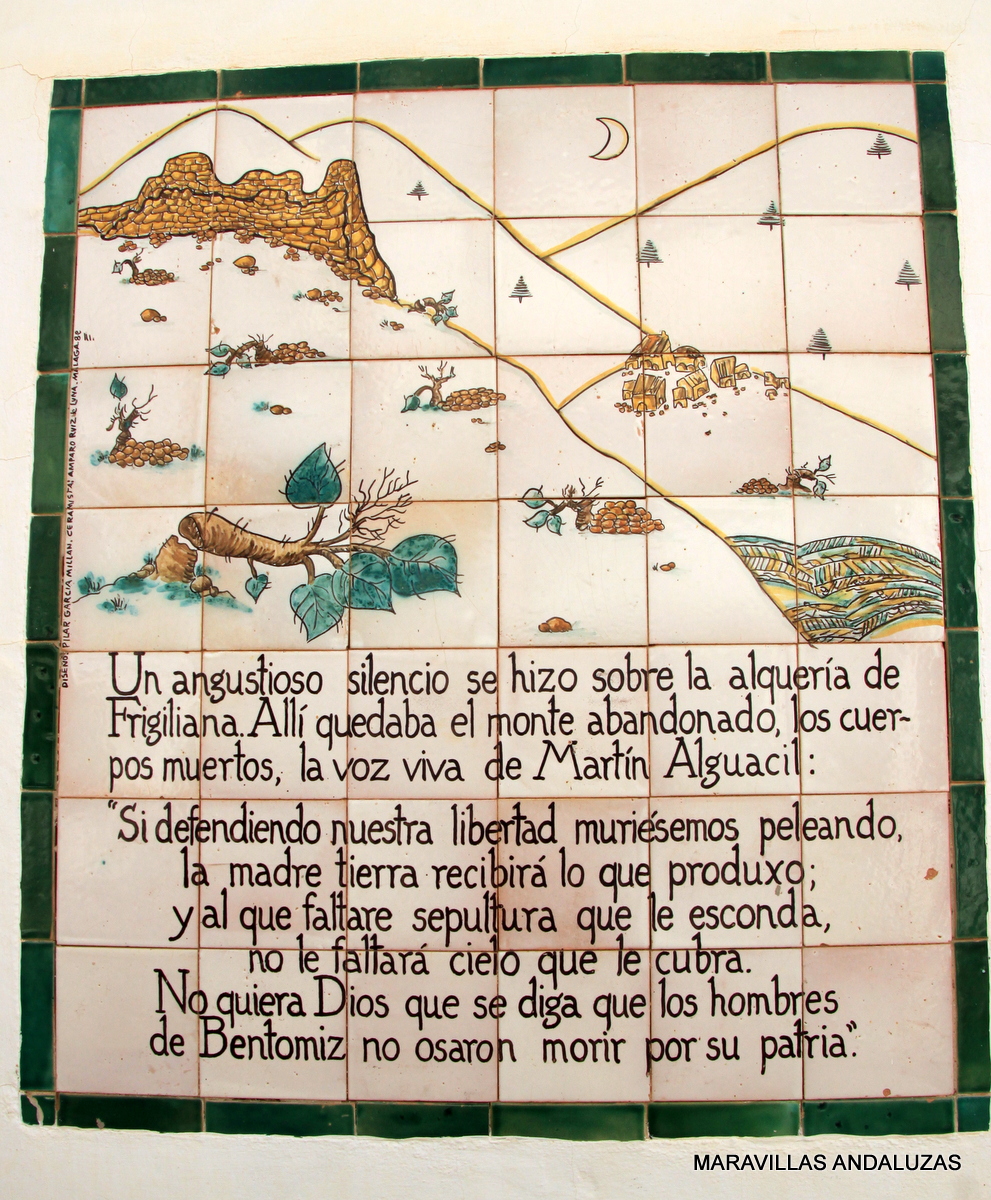 Un angustioso silencio se hizo sobre la alquería de
Frigiliana. Allí quedaba el monte abandonado, los cuer-
pos muertos, la voz viva de Martín Alguacil:
"Si defendiendo nuestra libertad muriésemos peleando,
la madre tierra recibirá lo que produxo;
y al que faltare sepultura que le esconda,
no le faltará cielo que le cubra.
No quiera Dios que se diga que los hombres
de Bentomiz no osaron morir por su patria".
DISEÑO: PILAR GARCIA MILLAN. CERAMISTA: AMPARO RUIZ de LUNA. MALAGA. 82
MARAVILLAS ANDALUZAS